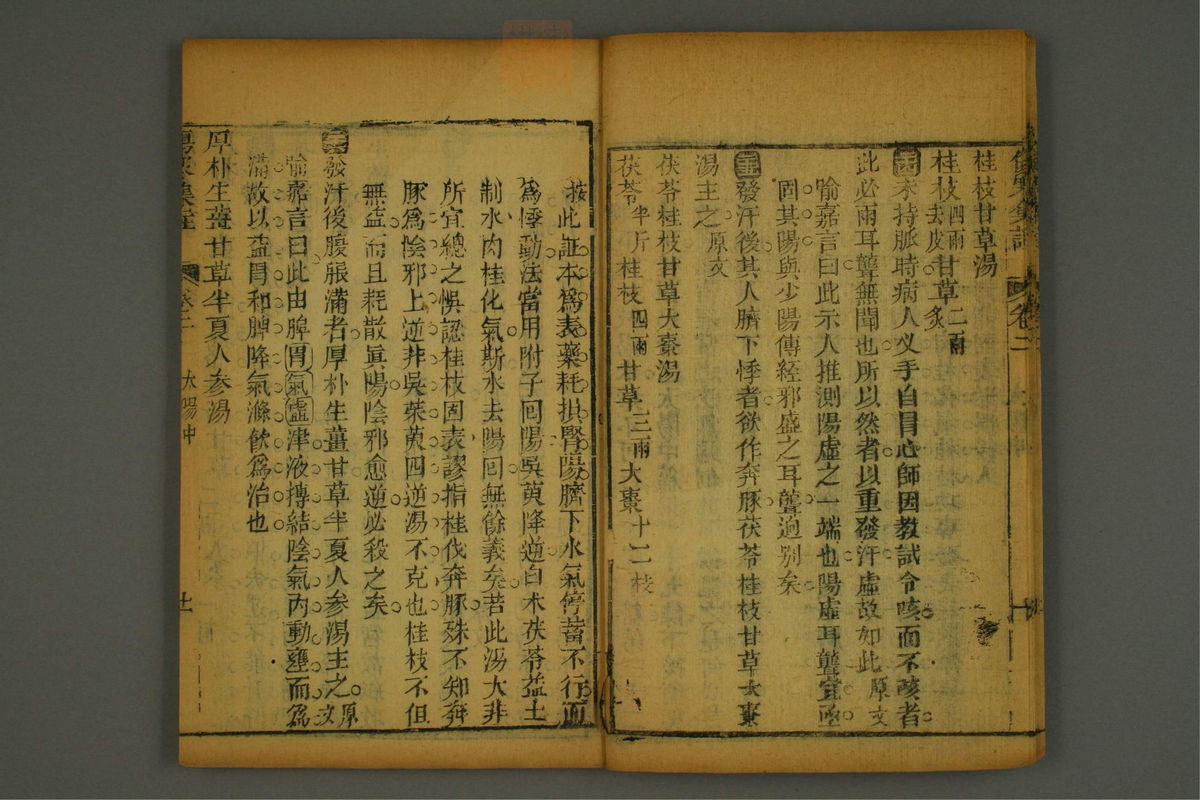 桂枝甘草湯
桂枝四兩去皮甘草二兩炙
未持脈時病人叉手自冒心師因教試令咳而不咳者
此必兩耳聾無聞也所以然者以重發汗虛故如此原文
喻嘉言曰此示人推測陽虛之一端也陽虛耳聾宜亟
固其陽與少陽傳經邪盛之耳聾逈别矣
發汗後其人臍下悸者欲作奔豚茯苓桂枝甘草大棗
湯主之原文
茯苓桂枝甘草大棗湯
茯苓半斤桂枝四兩甘草三兩大棗十二枝
按此証本為表藥耗損腎陽臍下水氣停蓄不行而
為悸動法當用附子囘陽吳萸降逆白术茯苓益土
制水肉桂化氣斯水去陽囘無餘義矣若此湯大非
所宜總之悞認桂枝固表謬指桂伐奔豚殊不知奔
豚為陰邪上逆非吳茱萸四逆湯不克也桂枝不但
無益而且耗散眞陽陰邪愈逆必殺之矣
發汗後腹脹滿者厚朴生薑甘草半夏人參湯主之原文
喻嘉言曰此由脾胃氣虛津液摶結陰氣內動壅而為
滿故以益胃和脾降氣滌飲為治也
厚朴生薑甘草半夏人參湯
卷二 太陽中 十一